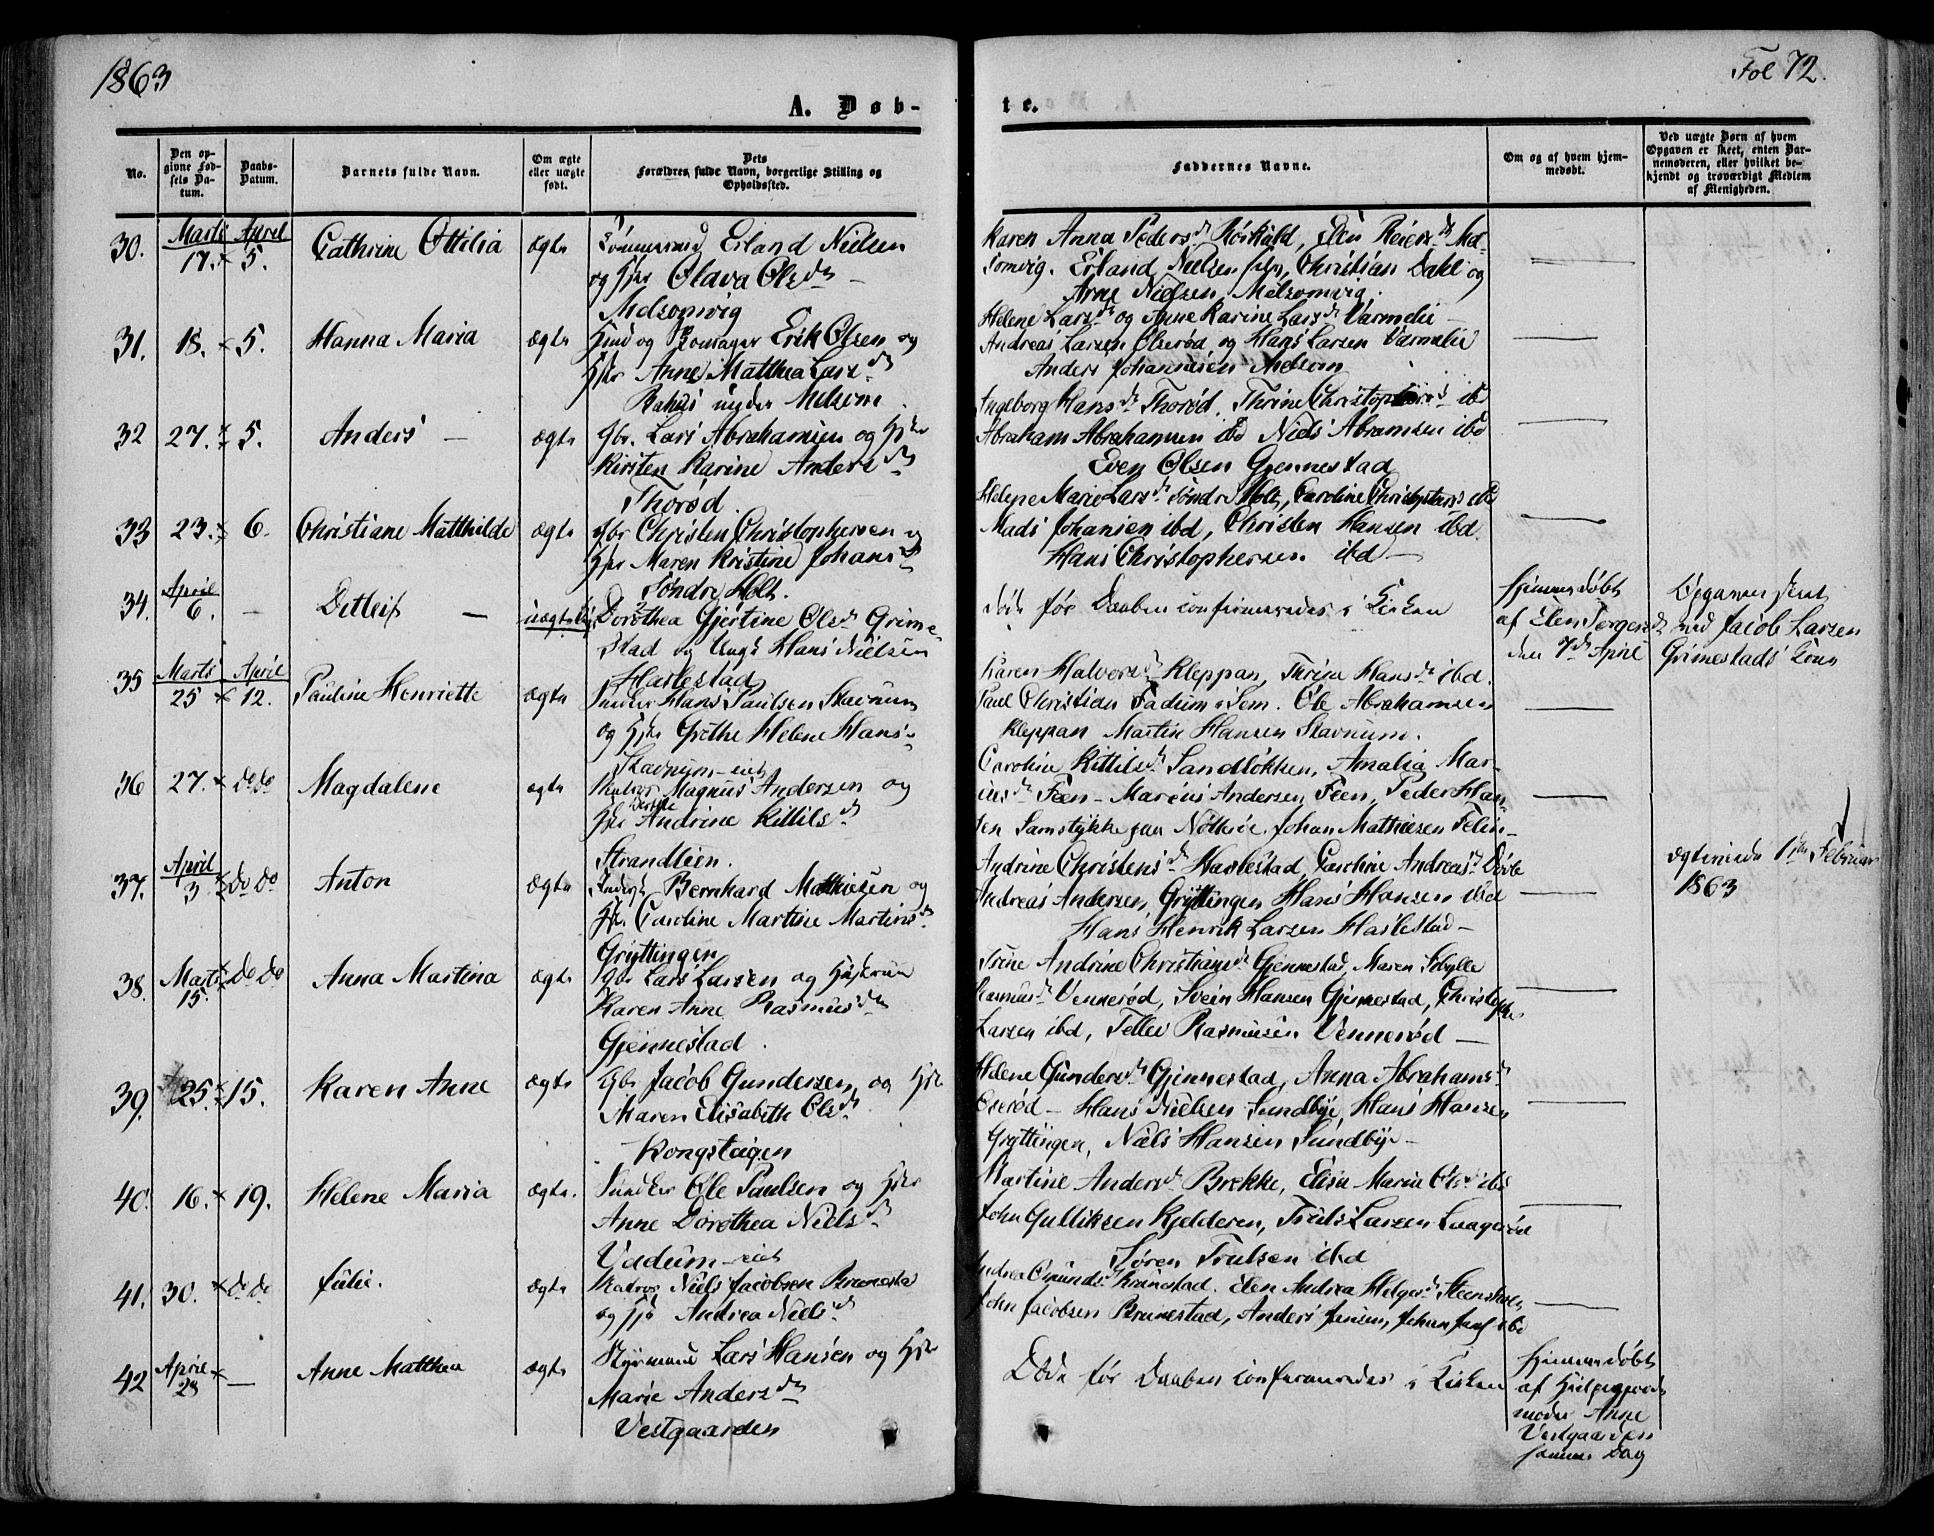 1863
Fol 72.
A. Døb-
te.
No.
Den op-
givne Fød-
sels Da-
tum.
Daabs-
Datum.
Barnets fulde Navn.
Om ægte
eller uægte
født.
Dets
Forældres fulde Navn, borgerlige Stilling og
Opholdssted.
Faddernes Navne.
Om og af hvem hjem-
medøbt.
Ved uægte Børn af hvem
Opgaven er skeet, enten Bar-
nemoderen, eller hvilket be-
kjendt og troværdigt Medlem
af Menigheden.
30. Marts 17. April 5. Cathrine Ottilia ægte Tømmermd Erland Nielsen
og Hstr Olava Olsdtr
Melsomvig
Karen Anna Pedersdtr Røskuld, Elen Reiersdtr Mel-
somvig. Erland Nielsen, Christian Dahl og
Arne Nielsen Melsomvig.
31. 18. 5. Hanna Maria ægte Hmd og Erik Olsen og
Hstr Anne Matthea Larsdtr
under Melsom.
Helene Larsdtr og Anne Karine Larsdtr Varmelie
Andreas Larsen Olserød og Hans Larsen Varmelie
Anders Johannesen Melsom
32 27. 5. Anders ægte Gbr. Lars Abrahamsen og Hstr
Kirsten Karine Andersdtr
Thorød.
Ingeborg Hansdtr Thorød, Thrine Christophersdtr ibd
Abraham Abrahamsen ibd Niels Abramsen ibd
Even Olsen Gjennestad
33 23. 6. Christiane Matthilde ægte Gbr Christen Christophersen og
Hstr Maren Kristine Johansdtr
Søndre Holt.
Helene Marie Larsdtr Søndre Holt, Caroline Christophersdtr ibd
Mads Johansen ibd, Christen Hansen ibd.
Hans Christophersen ibd
34. April 6. Detleif uægte Dorothea Gjertine Olsdtr Grime-
stad og Ungk Hans Nielsen
Haslestad
Døde før Daaben confirmeredes i Kirken
Hjemmedøbt
af Elen Torgersdtr
den 7de April
Opgaven skeet
ved Jacob Larsen
Grimestads Kone
35 Marts 25 April 12. Pauline Henriette ægte Inderst Hans Paulsen Stavnum
og Hstr Grethe Helene Hans-
Stavnum-eiet
Karen Halvorsdtr Kleppan, Thrine Hansdtr ibd.
Paul Christian Fadum i Sem. Ole Abrahamsen
Kleppan Martin Hansen Stavnum.
36 27. do do Magdalene ægte Matros Magnus Andersen og
Hstr Andrine Kittilsdtr
Strandlien.
Caroline Kittilsdtr Sandløkken, Amalia Mar-
iusdtr Feen - Marius Andersen Feen, Peder Han-
sen Samstykke paa Nøtterøe. Johan Mathiesen
37. April 3 do do Anton ægte Bernhard Matthiesen og
Hstr Caroline Martine Martinsdtr
Gryttingen
Andrine Christensdtr Haslestad, Caroline Andreasdtr
Andreas Andersen, Gryttingen Hans Hansen ibd
Hans Henrik Larsen Haslestad
ægteviede 1ste Februar
1863
38. Marts 15. do do Anna Martina ægte Gbr Lars Larsen og Hustrue
Karen Anne Rasmusdtr
Gjennestad.
Trine Andrine Christiansdtr Gjennestad, Maren Sibylle
Rasmusdtr Vennerød, Svein Hansen Gjennestad, Christopher
Larsen ibd, Tellev Rasmussen Vennerød
39. 25. 15. Karen Anne ægte Gbr Jacob Gundersen og Hstr
Maren Elisabeth Olsdtr
Kongsteigen
Helene Gundersdtr Gjennestad, Anna Abrahamsdtr
Oserød - Hans Nielsen Sundbye, Hans Hansen
Gryttingen, Niels Hansen Sundbye
40. 16. 19. Helene Maria ægte. Inderst Ole Paulsen og Hstr
Anne Dorothea Nielsdtr
Vadum-eiet
Martine Andersdtr Brekke, Elise Marie Olsdtr ibd
John Gulliksen Kjelderen, Truls Larsen
Søren Trulsen ibd
41. 30. do do Julie. ægte Matros Niels Jacobsen Brunestad
og Hstr Andrea Nielsdtr
Andrea Brunestad. Elen Andrea Helgersdtr
John Jacobsen Brunestad, Anders Jensen,
42 April 28 Anne Matthea ægte Styrmand Lars Hansen og Hstr
Marie Andersdtr
Vestgaarden
Døde før Daaben confirmeredes i Kirken
Hjemmedøbt
af Hjelpejorde-
moder Anne
Vestgaarden
samme Dag